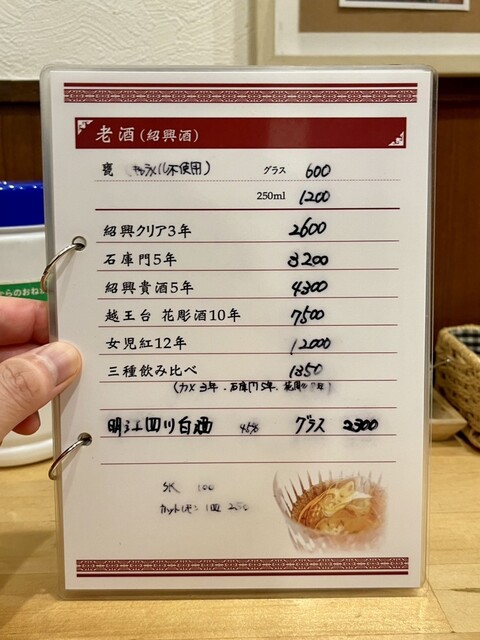 老酒(紹興酒)
甕 (キャラメル不使用) グラス 600
250ml 1200
紹興クリア3年 2600
石庫門5年 3200
紹興貴酒5年 4300
越王台 花彫酒10年 7500
女児紅12年 12000
三種飲み比べ 1350
(カメ 3年、石庫門5年、
四川白酒 45% グラス 2300
100
カットレモン 1皿 250
からのおね